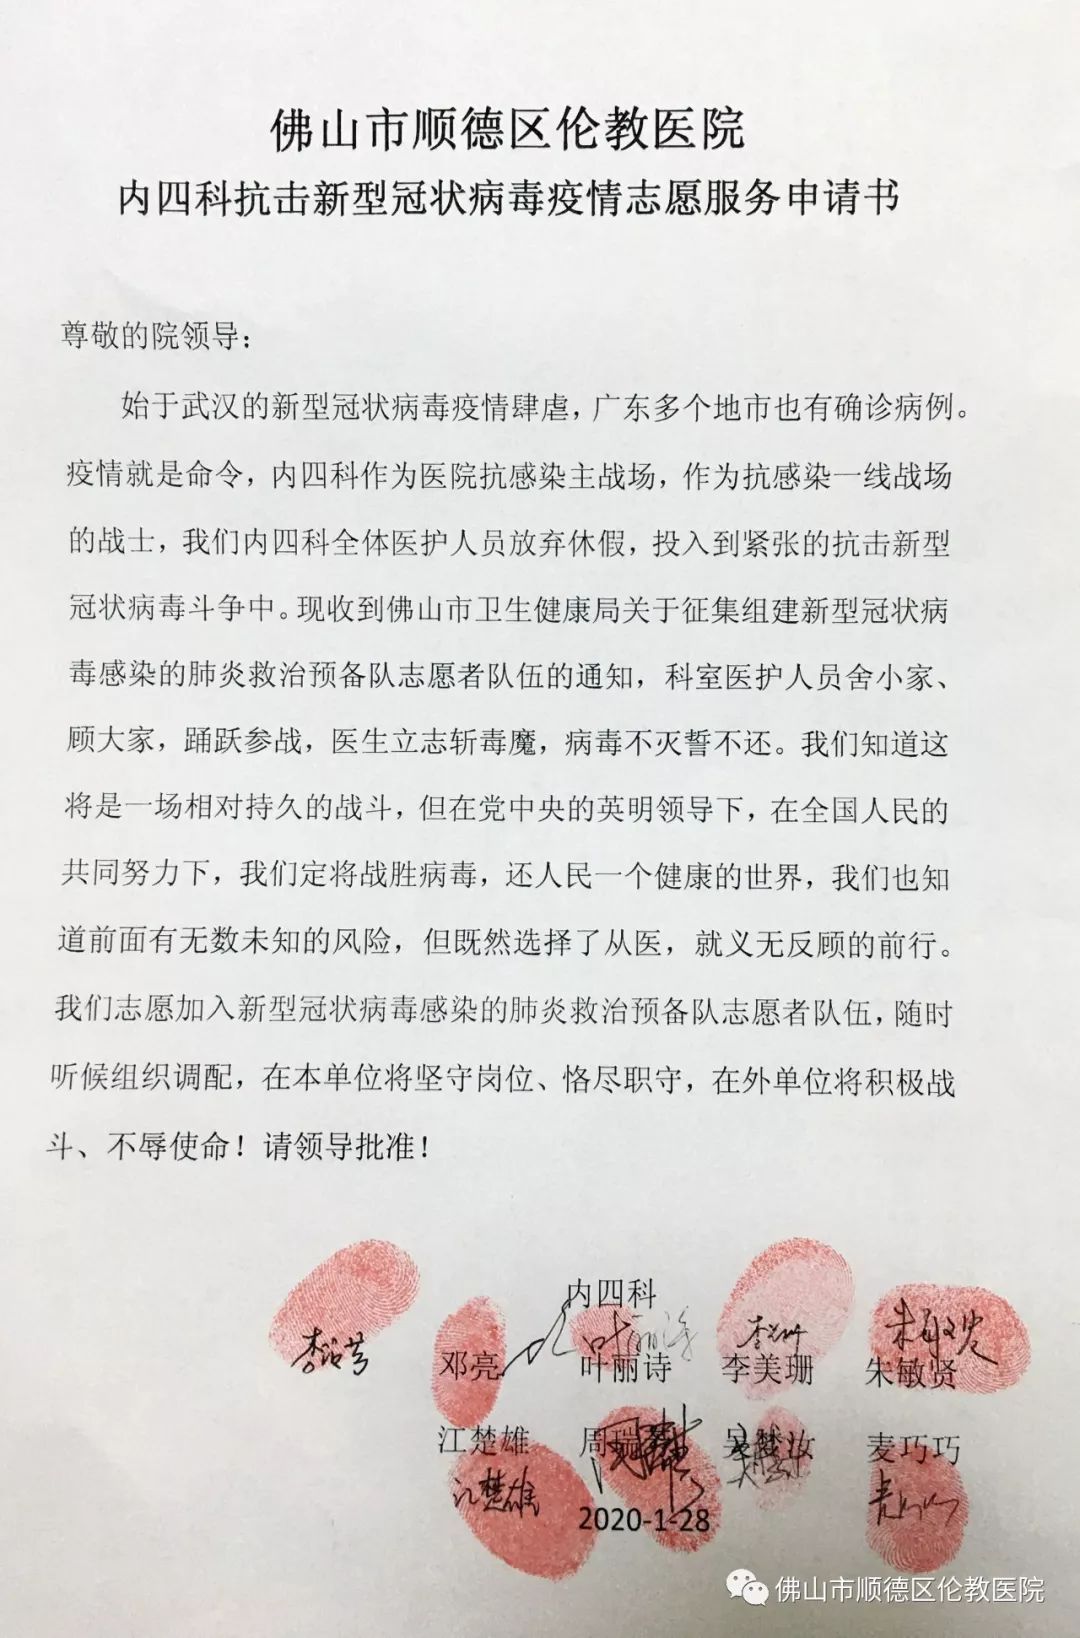 佛山市顺德区伦教医院
内四科抗击新型冠状病毒疫情志愿服务申请书
尊敬的院领导：
始于武汉的新型冠状病毒疫情肆虐，广东多个地市也有确诊病例。
疫情就是命令，内四科作为医院抗感染主战场，作为抗感染一线战场
的战士，我们内四科全体医护人员放弃休假，投入到紧张的抗击新型
冠状病毒斗争中。现收到佛山市卫生健康局关于征集组建新型冠状病
毒感染的肺炎救治预备队志愿者队伍的通知，科室医护人员舍小家、
顾大家，踊跃参战，医生立志斩毒魔，病毒不灭誓不还。我们知道这
将是一场相对持久的战斗，但在党中央的英明领导下，在全国人民的
共同努力下，我们定将战胜病毒，还人民一个健康的世界，我们也知
道前面有无数未知的风险，但既然选择了从医，就义无反顾的前行。
我们志愿加入新型冠状病毒感染的肺炎救治预备队志愿者队伍，随时
听候组织调配，在本单位将坚守岗位、恪尽职守，在外单位将积极战
斗、不辱使命！请领导批准！
内四科
叶丽诗 朱敏贤
邓亮 叶丽诗 李美珊 朱敏贤
江楚雄 周瑞 汝 麦巧巧
江楚雄 麦巧巧
2020-1-28
佛山市顺德区伦教医院